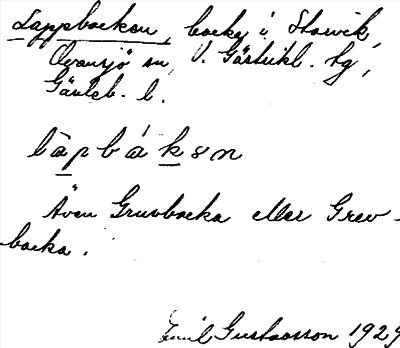 Lappbacken, backe i Storvik,
Ovansjö sn, V. Gästrikl. hg,
Gävleb. l.
làpbák8n
Även Gruvbacka eller Grev-
backa.
Emil Gustavsson 1929